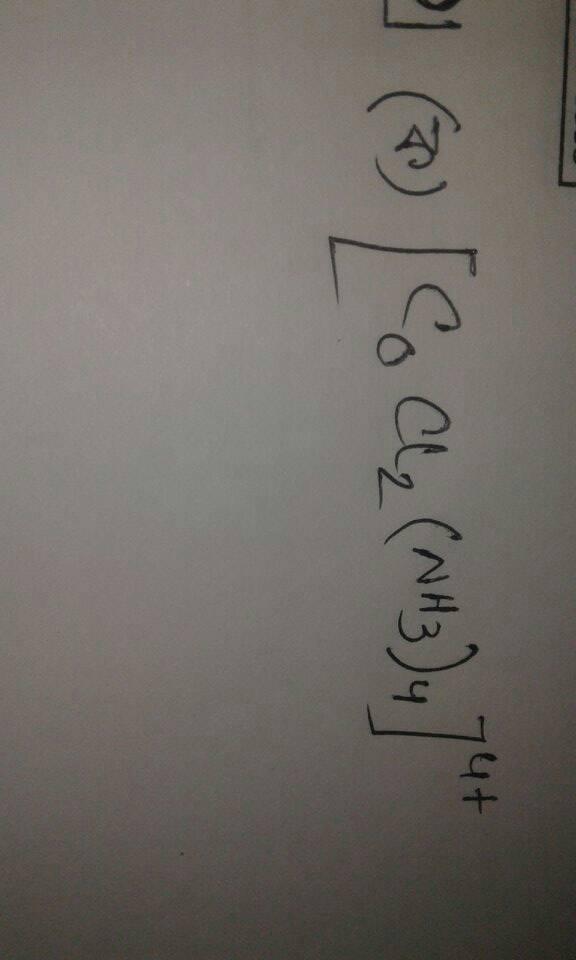 (ক) [CoCl₂(NH3)₄]⁴⁺